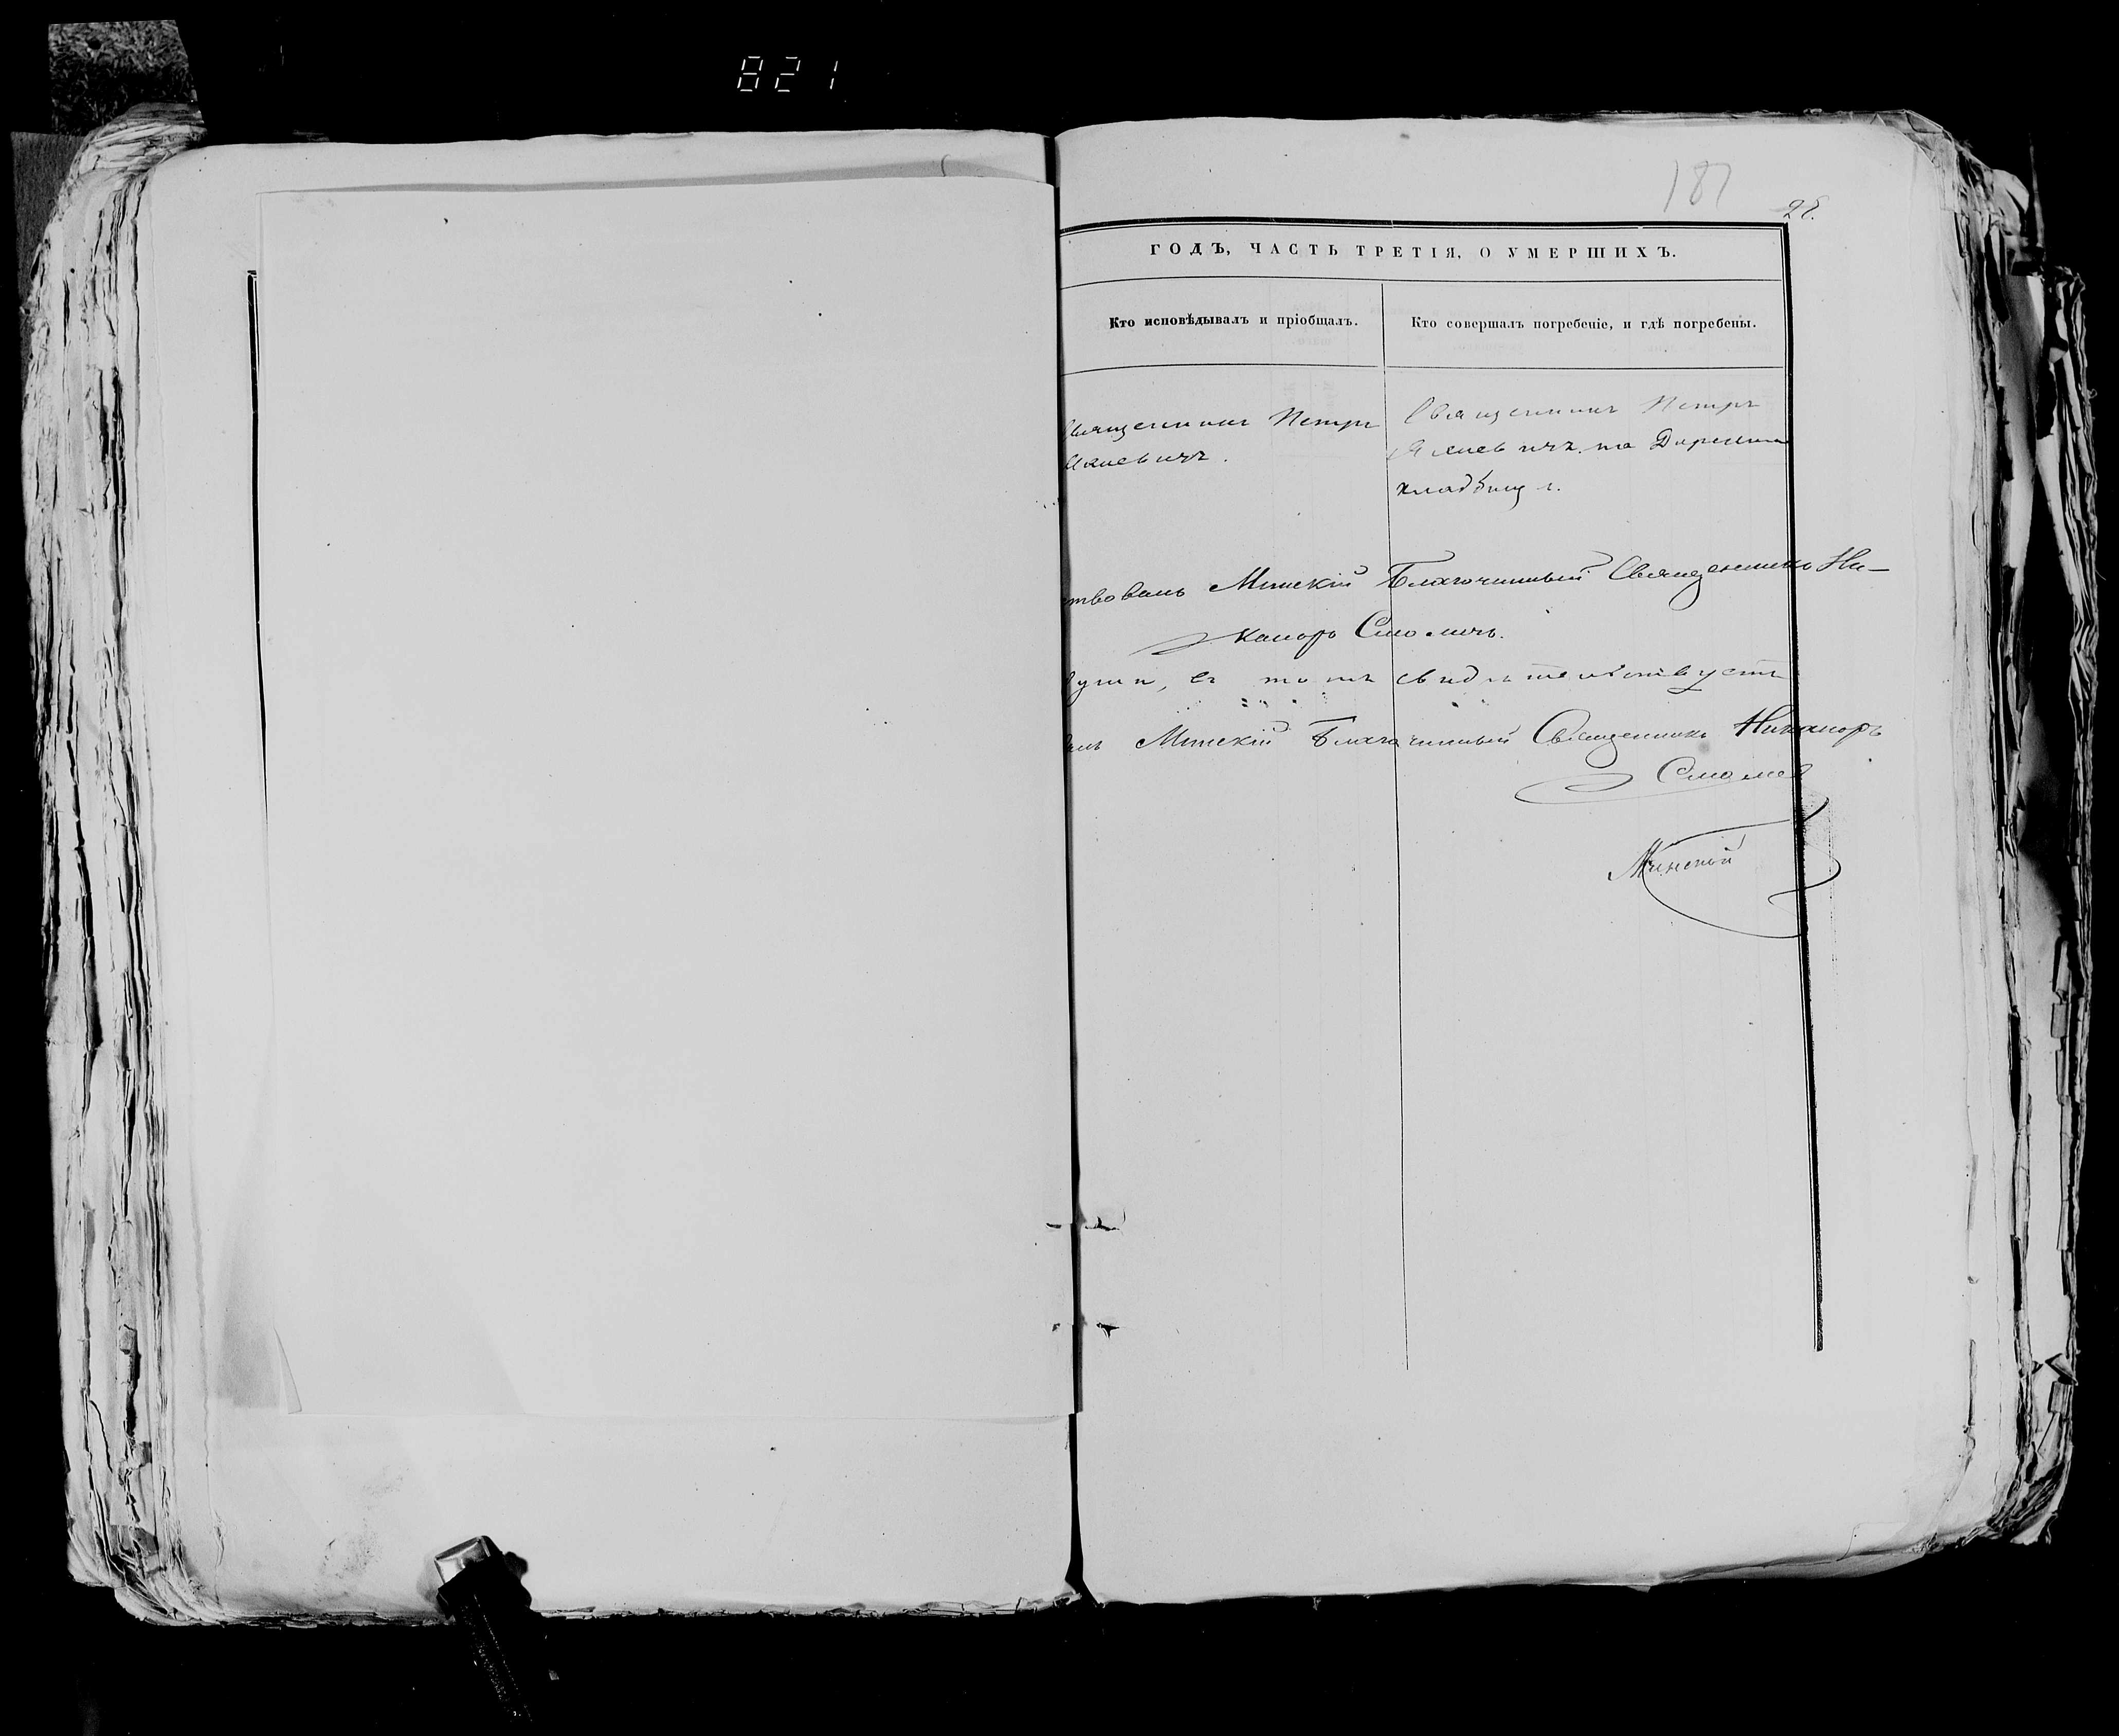 821
187
28.
ГОДЪ, ЧАСТЬ ТРЕТІЯ, О УМЕРШИХЪ.
Кто исповѣдывалъ и пріобщалъ.
Кто совершалъ погребеніе, и гдѣ погребены.
Священникъ Петръ
Священникъ Петръ
на
кладбищѣ.
ствовалъ Минскій Благочинный Священникъ Ни-
каноръ Смоличъ.
въ томъ свидѣтельствуетъ
Минскій Благочинный Священникъ Никаноръ
Смолич
Минский